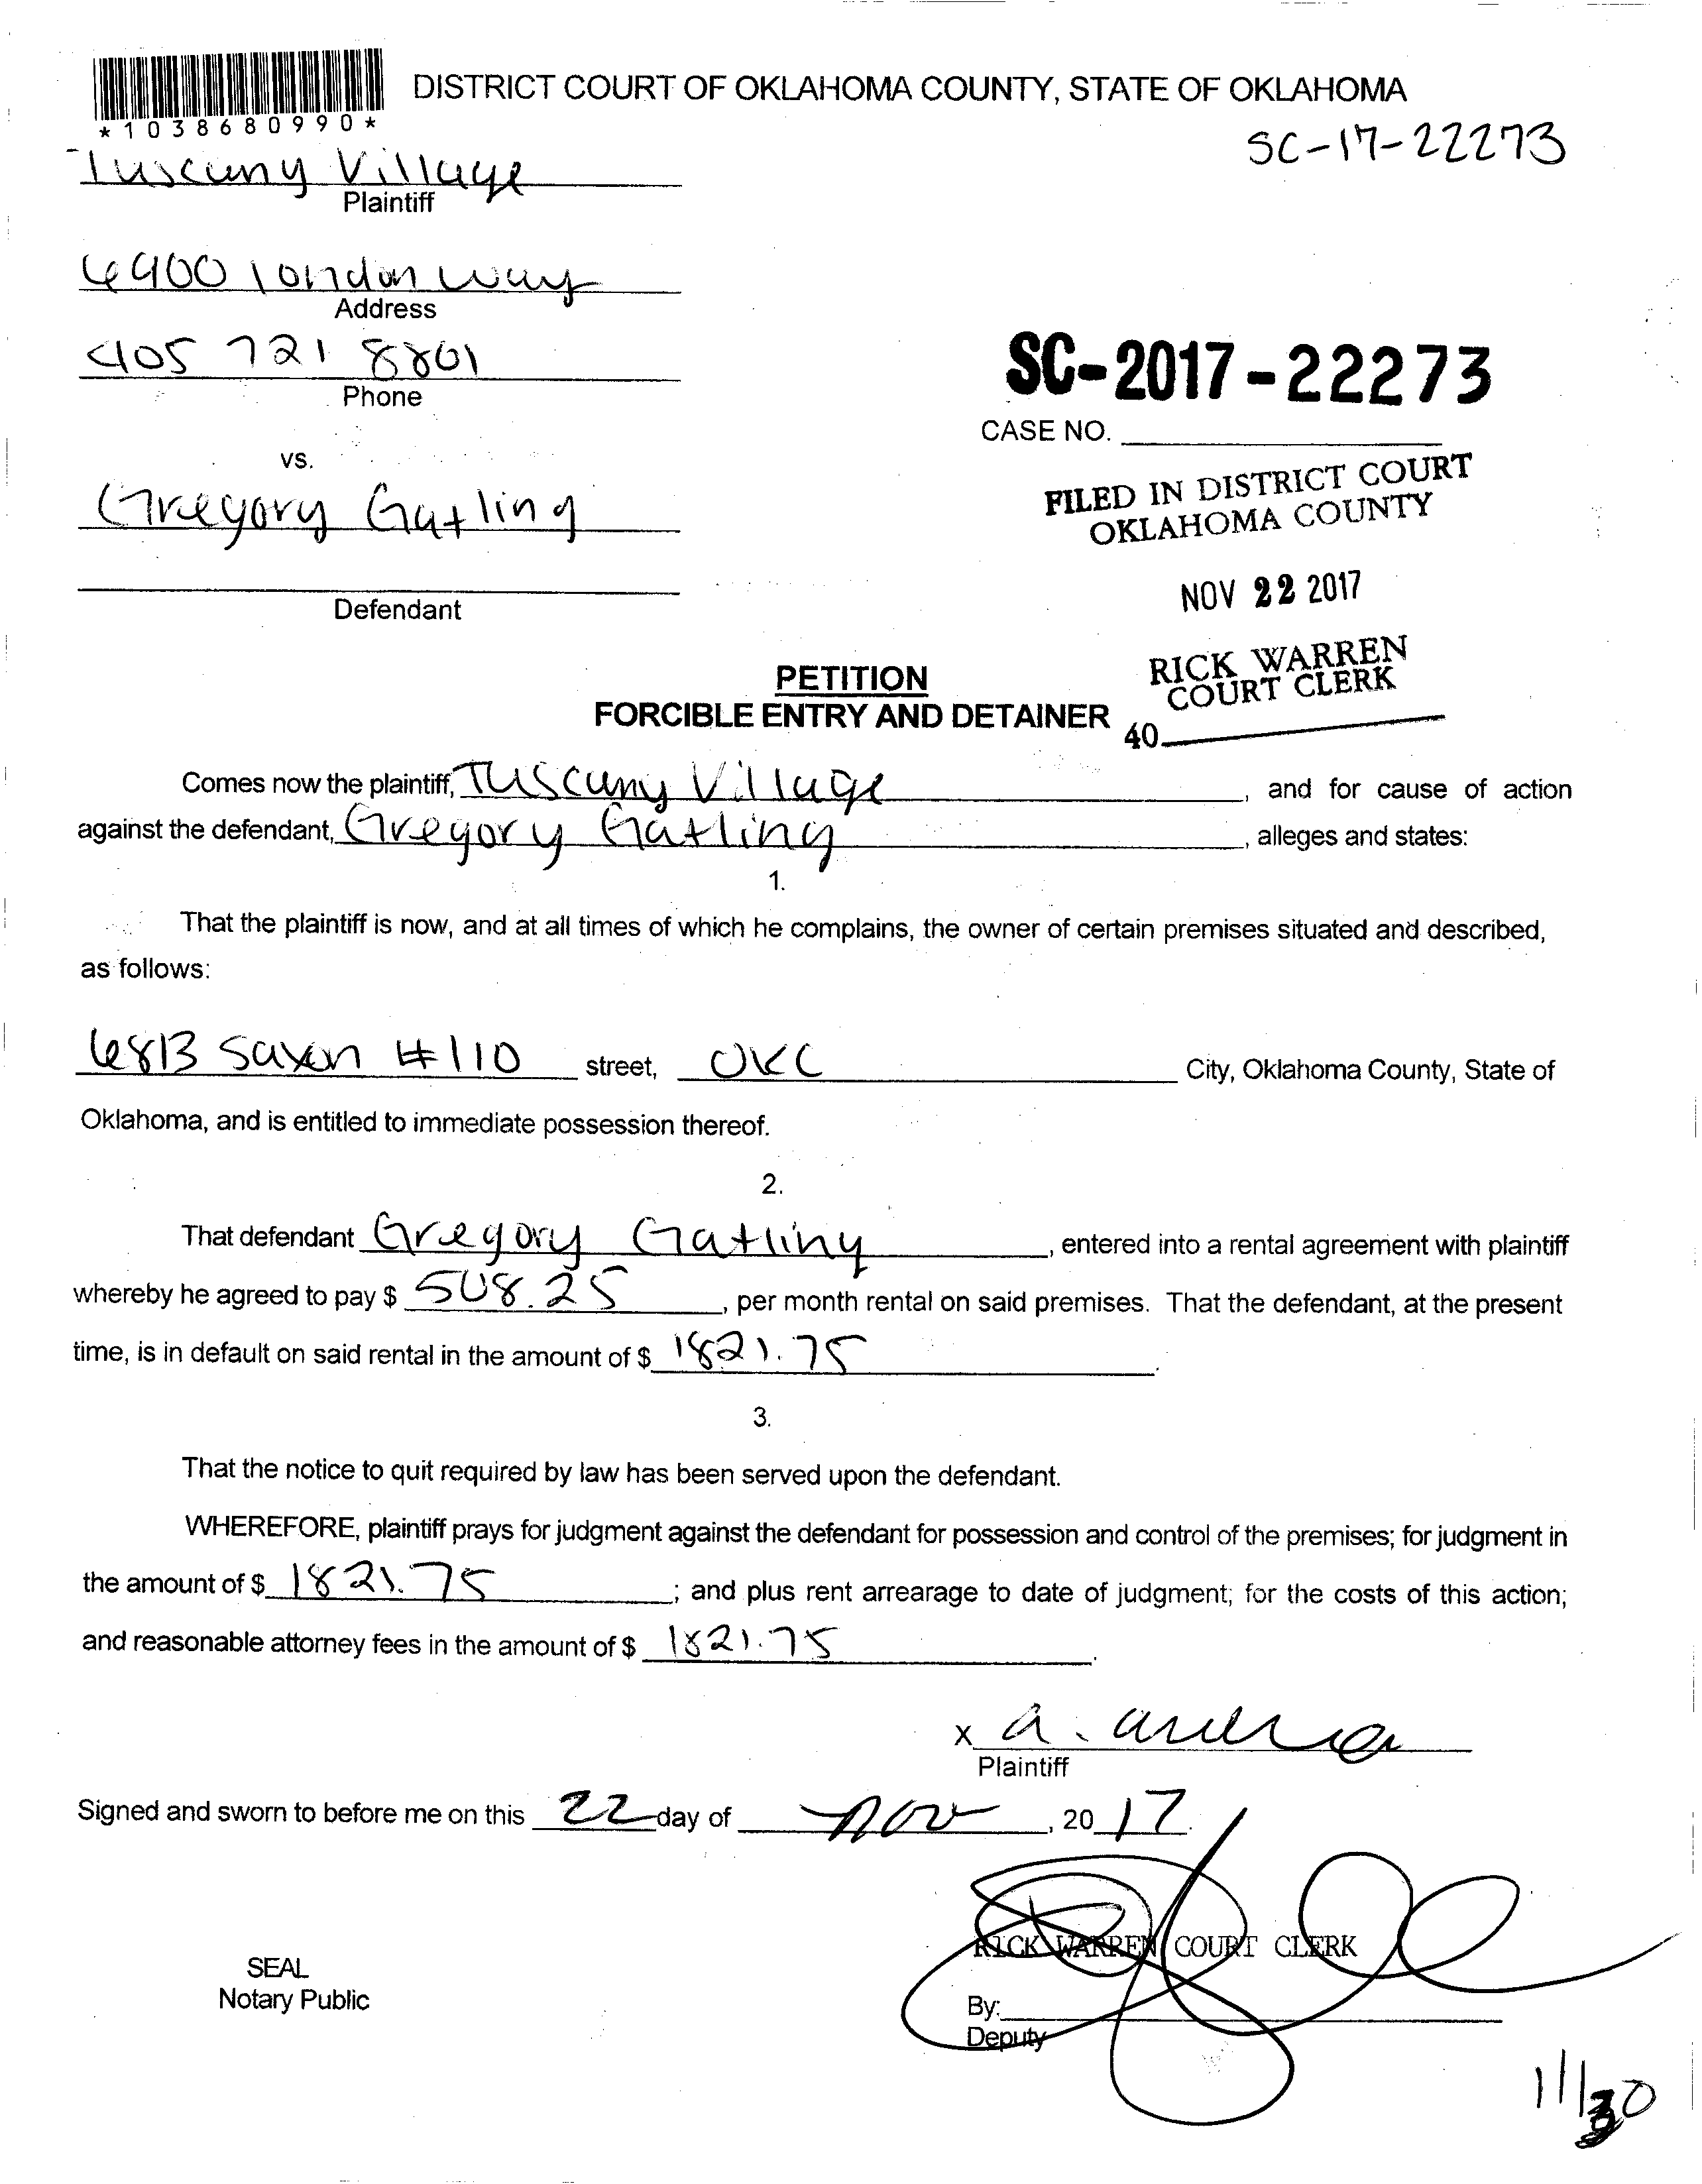 DISTRICT COURT OF OKLAHOMA COUNTY, STATE OF OKLAHOMA
*1038680990*
SC-17-22273
Tuscany Village
Plaintiff
6900 london way
Address
405 721 8801
Phone
SC-2017-22273
CASE NO.
vs.
FILED IN DISTRICT COURT
OKLAHOMA COUNTY
Gregory Gatling
NOV 22 2017
Defendant
RICK WARREN
COURT CLERK
40
PETITION
FORCIBLE ENTRY AND DETAINER
Comes now the plaintiff, Tuscany Village, and for cause of action
against the defendant, Gregory Gatling, alleges and states:
1.
That the plaintiff is now, and at all times of which he complains, the owner of certain premises situated and described,
as follows:
6813 Saxon #110 street, OKC City, Oklahoma County, State of
Oklahoma, and is entitled to immediate possession thereof.
2.
That defendant Gregory Gatling, entered into a rental agreement with plaintiff
whereby he agreed to pay $ 508.25, per month rental on said premises. That the defendant, at the present
time, is in default on said rental in the amount of $ 1821.75.
3.
That the notice to quit required by law has been served upon the defendant.
WHEREFORE, plaintiff prays for judgment against the defendant for possession and control of the premises; for judgment in
the amount of $ 1821.75; and plus rent arrearage to date of judgment; for the costs of this action;
and reasonable attorney fees in the amount of $ 1821.75.
x a.
Plaintiff
Signed and sworn to before me on this 22 day of nov, 20 17.
RICK WARREN COURT CLERK
SEAL
Notary Public
By:
Deputy
11/30